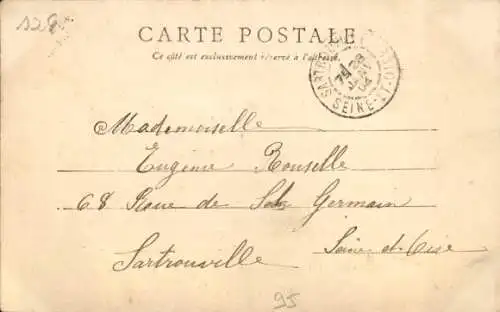 329
CARTE POSTALE
Ce côté est exclusivement réservé à l'adresse
SARTROUVILLE
SEINE-ET-OISE
Mademoiselle
Eugénie Rouselle
68 Roue de St Germain
Sartrouville
Seine-et-Oise
95